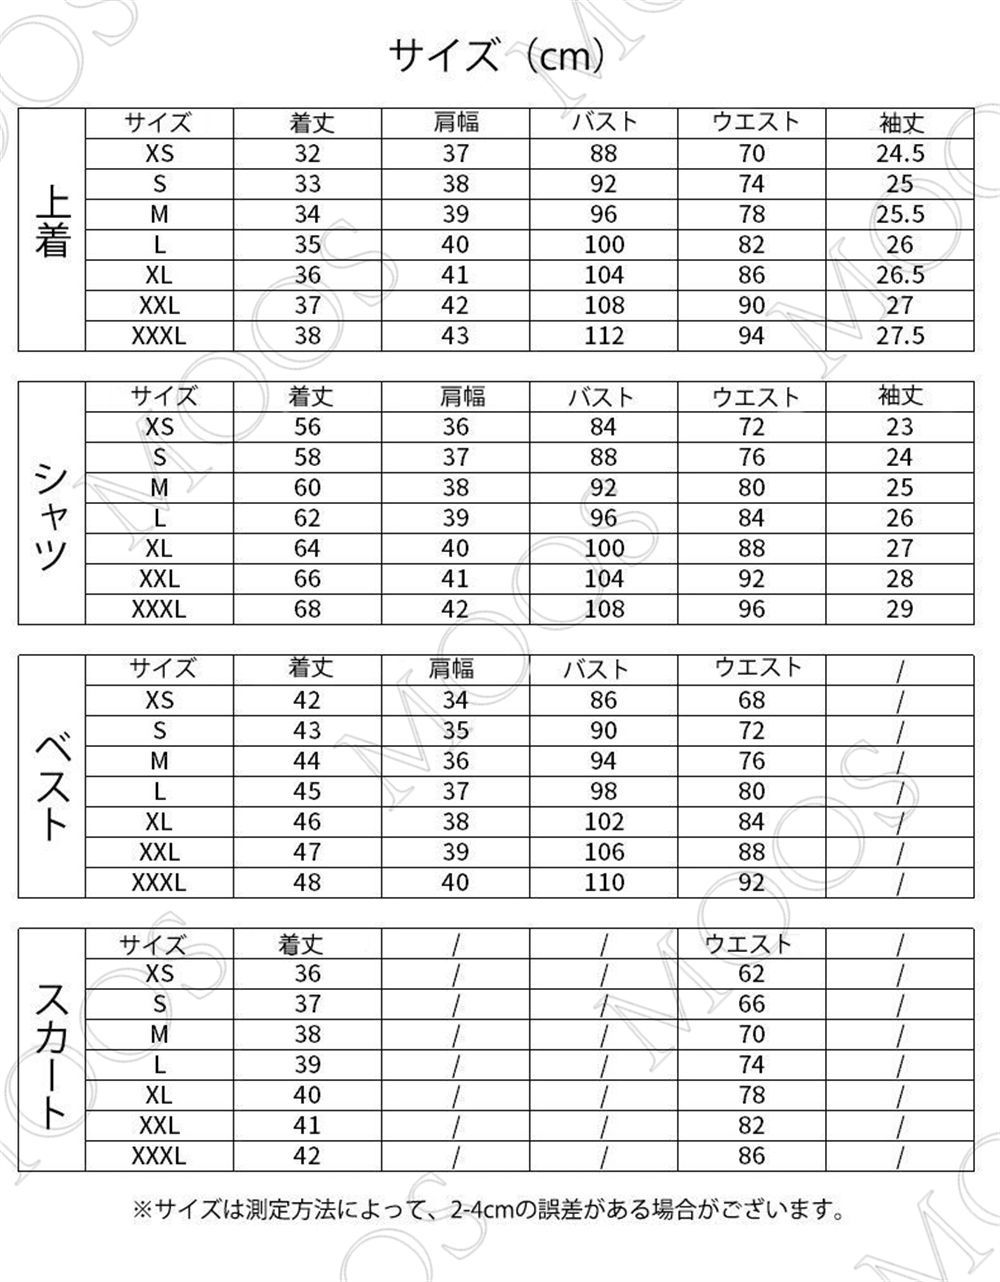 サイズ（cm）
上着
サイズ 着丈 肩幅 バスト ウエスト 袖丈
XS 32 37 88 70 24.5
S 33 38 92 74 25
M 34 39 96 78 25.5
L 35 40 100 82 26
XL 36 41 104 86 26.5
XXL 37 42 108 90 27
XXXL 38 43 112 94 27.5
シャツ
サイズ 着丈 肩幅 バスト ウエスト 袖丈
XS 56 36 84 72 23
S 58 37 88 76 24
M 60 38 92 80 25
L 62 39 96 84 26
XL 64 40 100 88 27
XXL 66 41 104 92 28
XXXL 68 42 108 96 29
ベスト
サイズ 着丈 肩幅 バスト ウエスト /
XS 42 34 86 68 /
S 43 35 90 72 /
M 44 36 94 76 /
L 45 37 98 80 /
XL 46 38 102 84 /
XXL 47 39 106 88 /
XXXL 48 40 110 92 /
スカート
サイズ 着丈 / / ウエスト /
XS 36 / / 62 /
S 37 / / 66 /
M 38 / / 70 /
L 39 / / 74 /
XL 40 / / 78 /
XXL 41 / / 82 /
XXXL 42 / / 86 /
※サイズは測定方法によって、2-4cmの誤差がある場合がございます。
MOOS
MOOS
MOOS
MOOS
MOOS